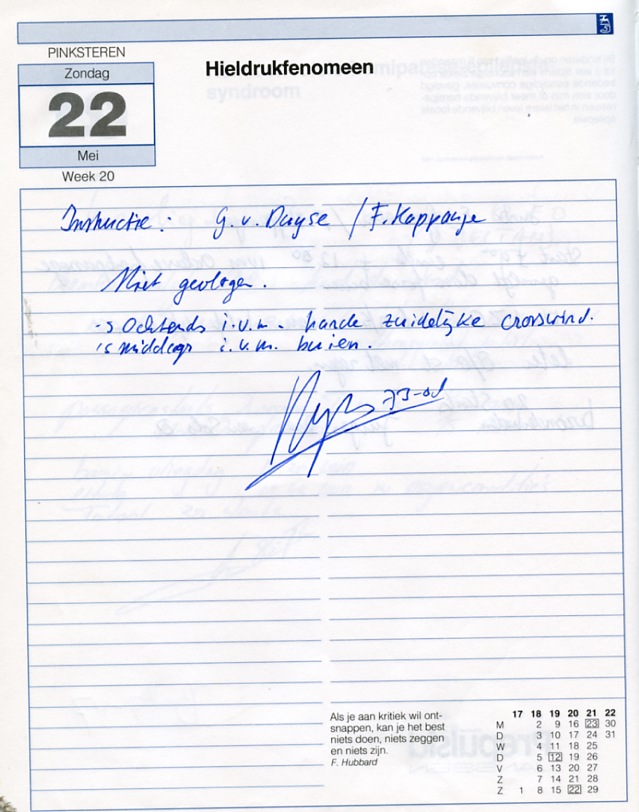 PINKSTEREN
Zondag
22
Mei
Week 20
Hieldrukfenomeen
Instructie : G. v. Duyse / F. Kappauje
Niet gevlogen.
's Ochtends i.v.m. harde zuidelijke crosswind.
's middags i.v.m. buien.
Als je aan kritiek wil ont-
snappen, kan je het best
niets doen, niets zeggen
en niets zijn.
F. Hubbard
17 18 19 20 21 22
M 2 9 16 23 30
D 3 10 17 24 31
W 4 11 18 25
D 5 12 19 26
V 6 13 20 27
Z 7 14 21 28
Z 1 8 15 22 29